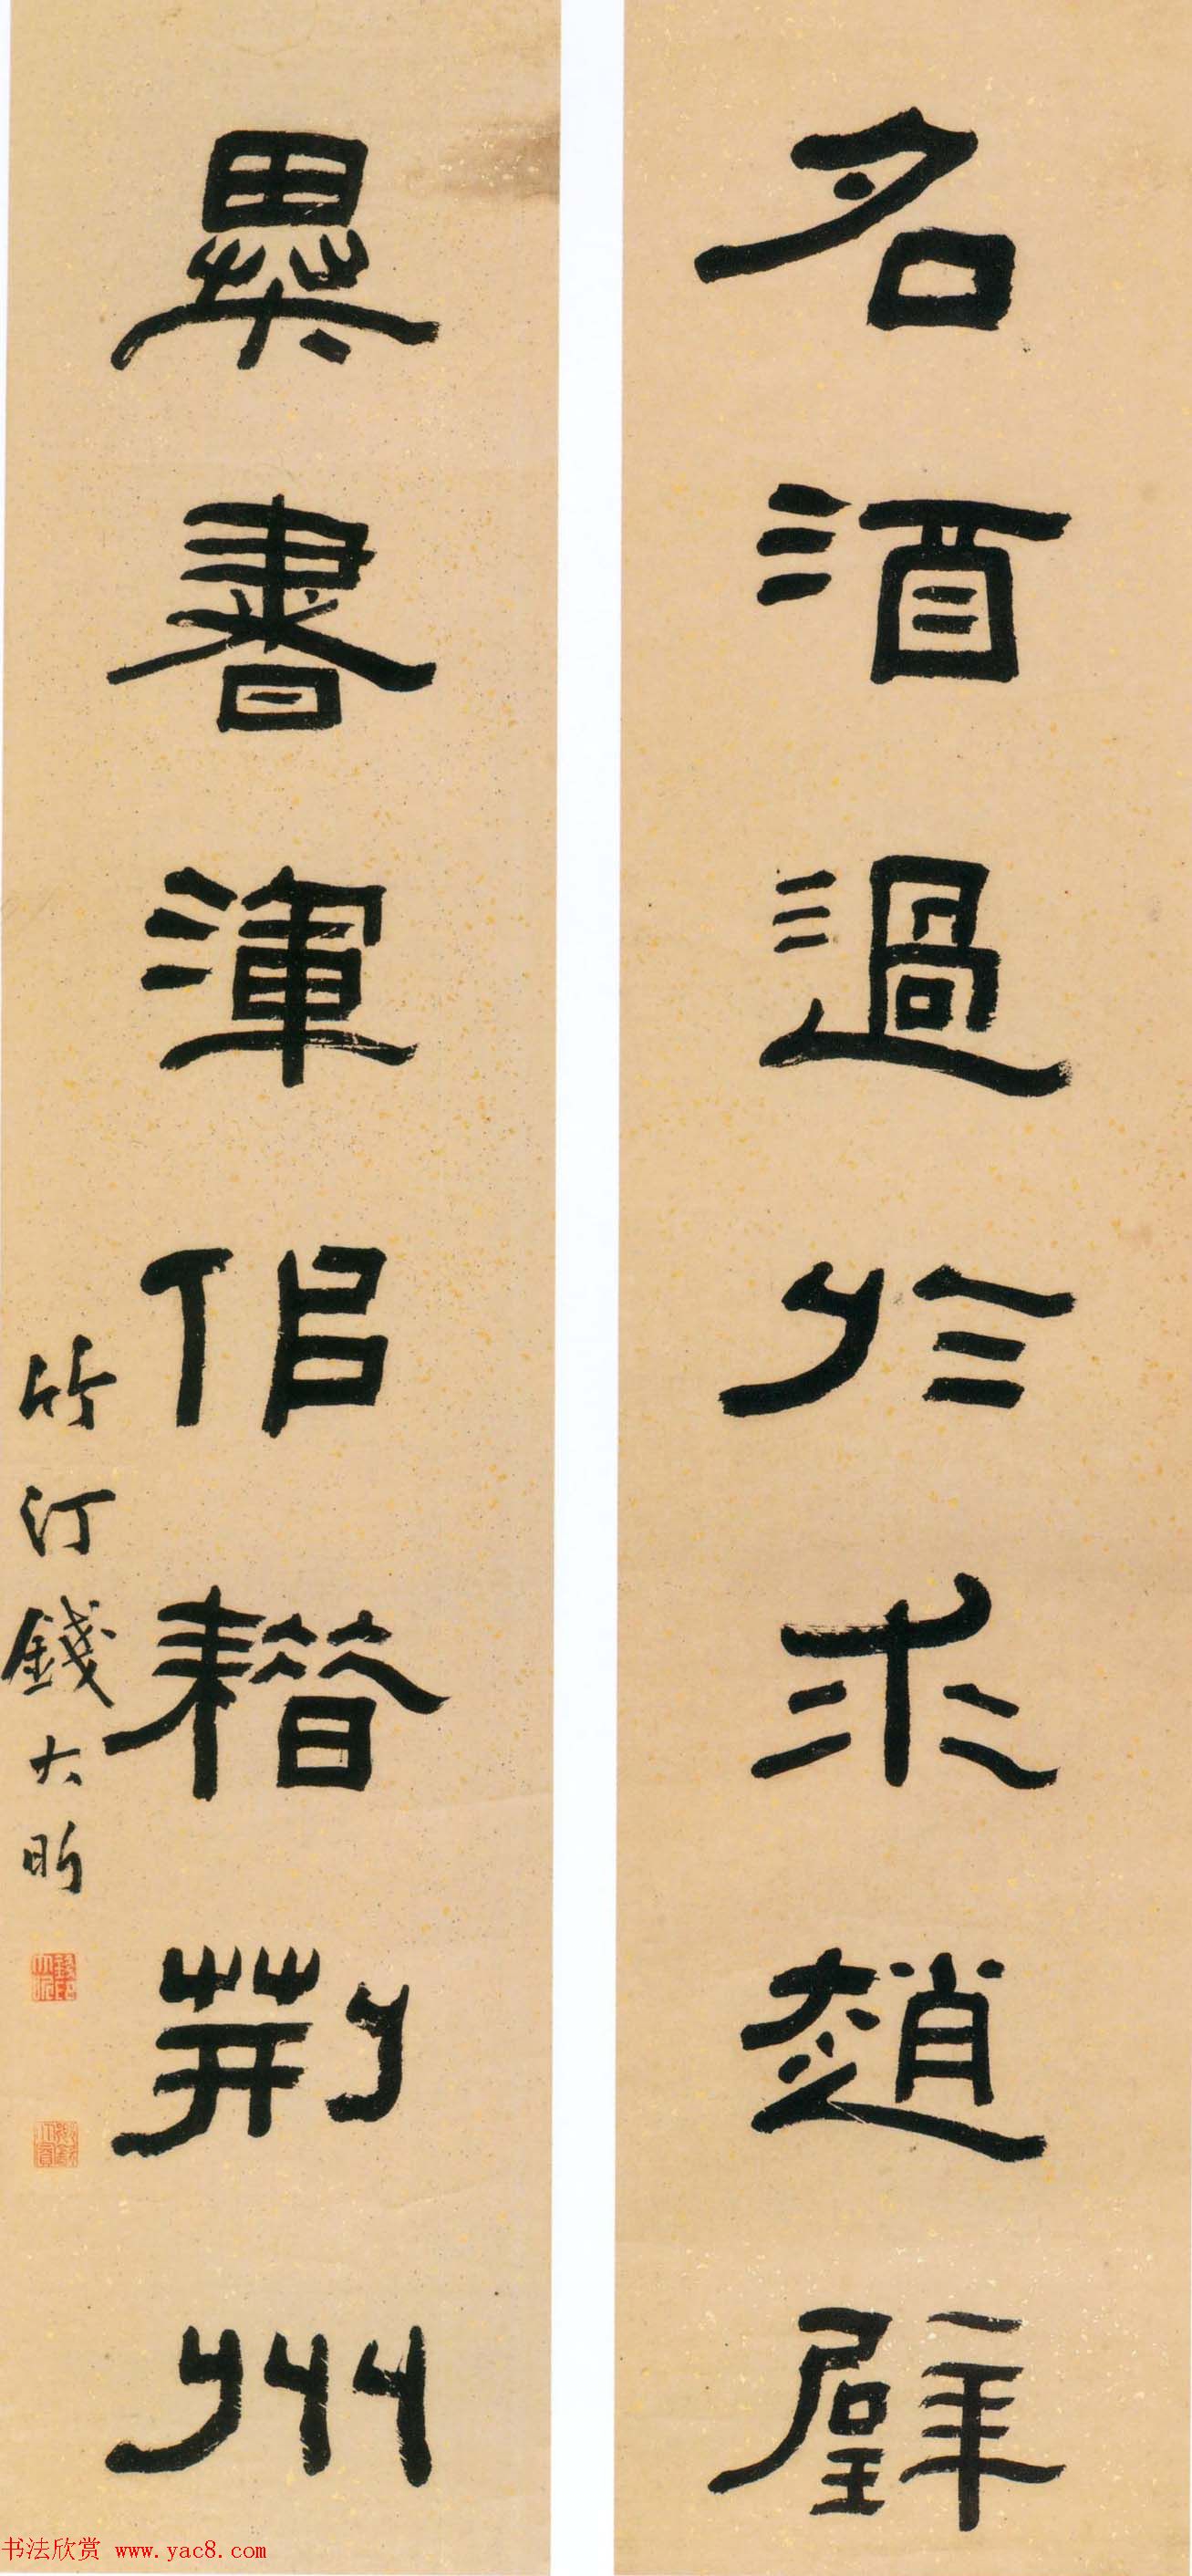 名酒過於求趙璧
異書渾佀耤荊州
竹汀錢大昕
书法欣赏 www.yac8.com